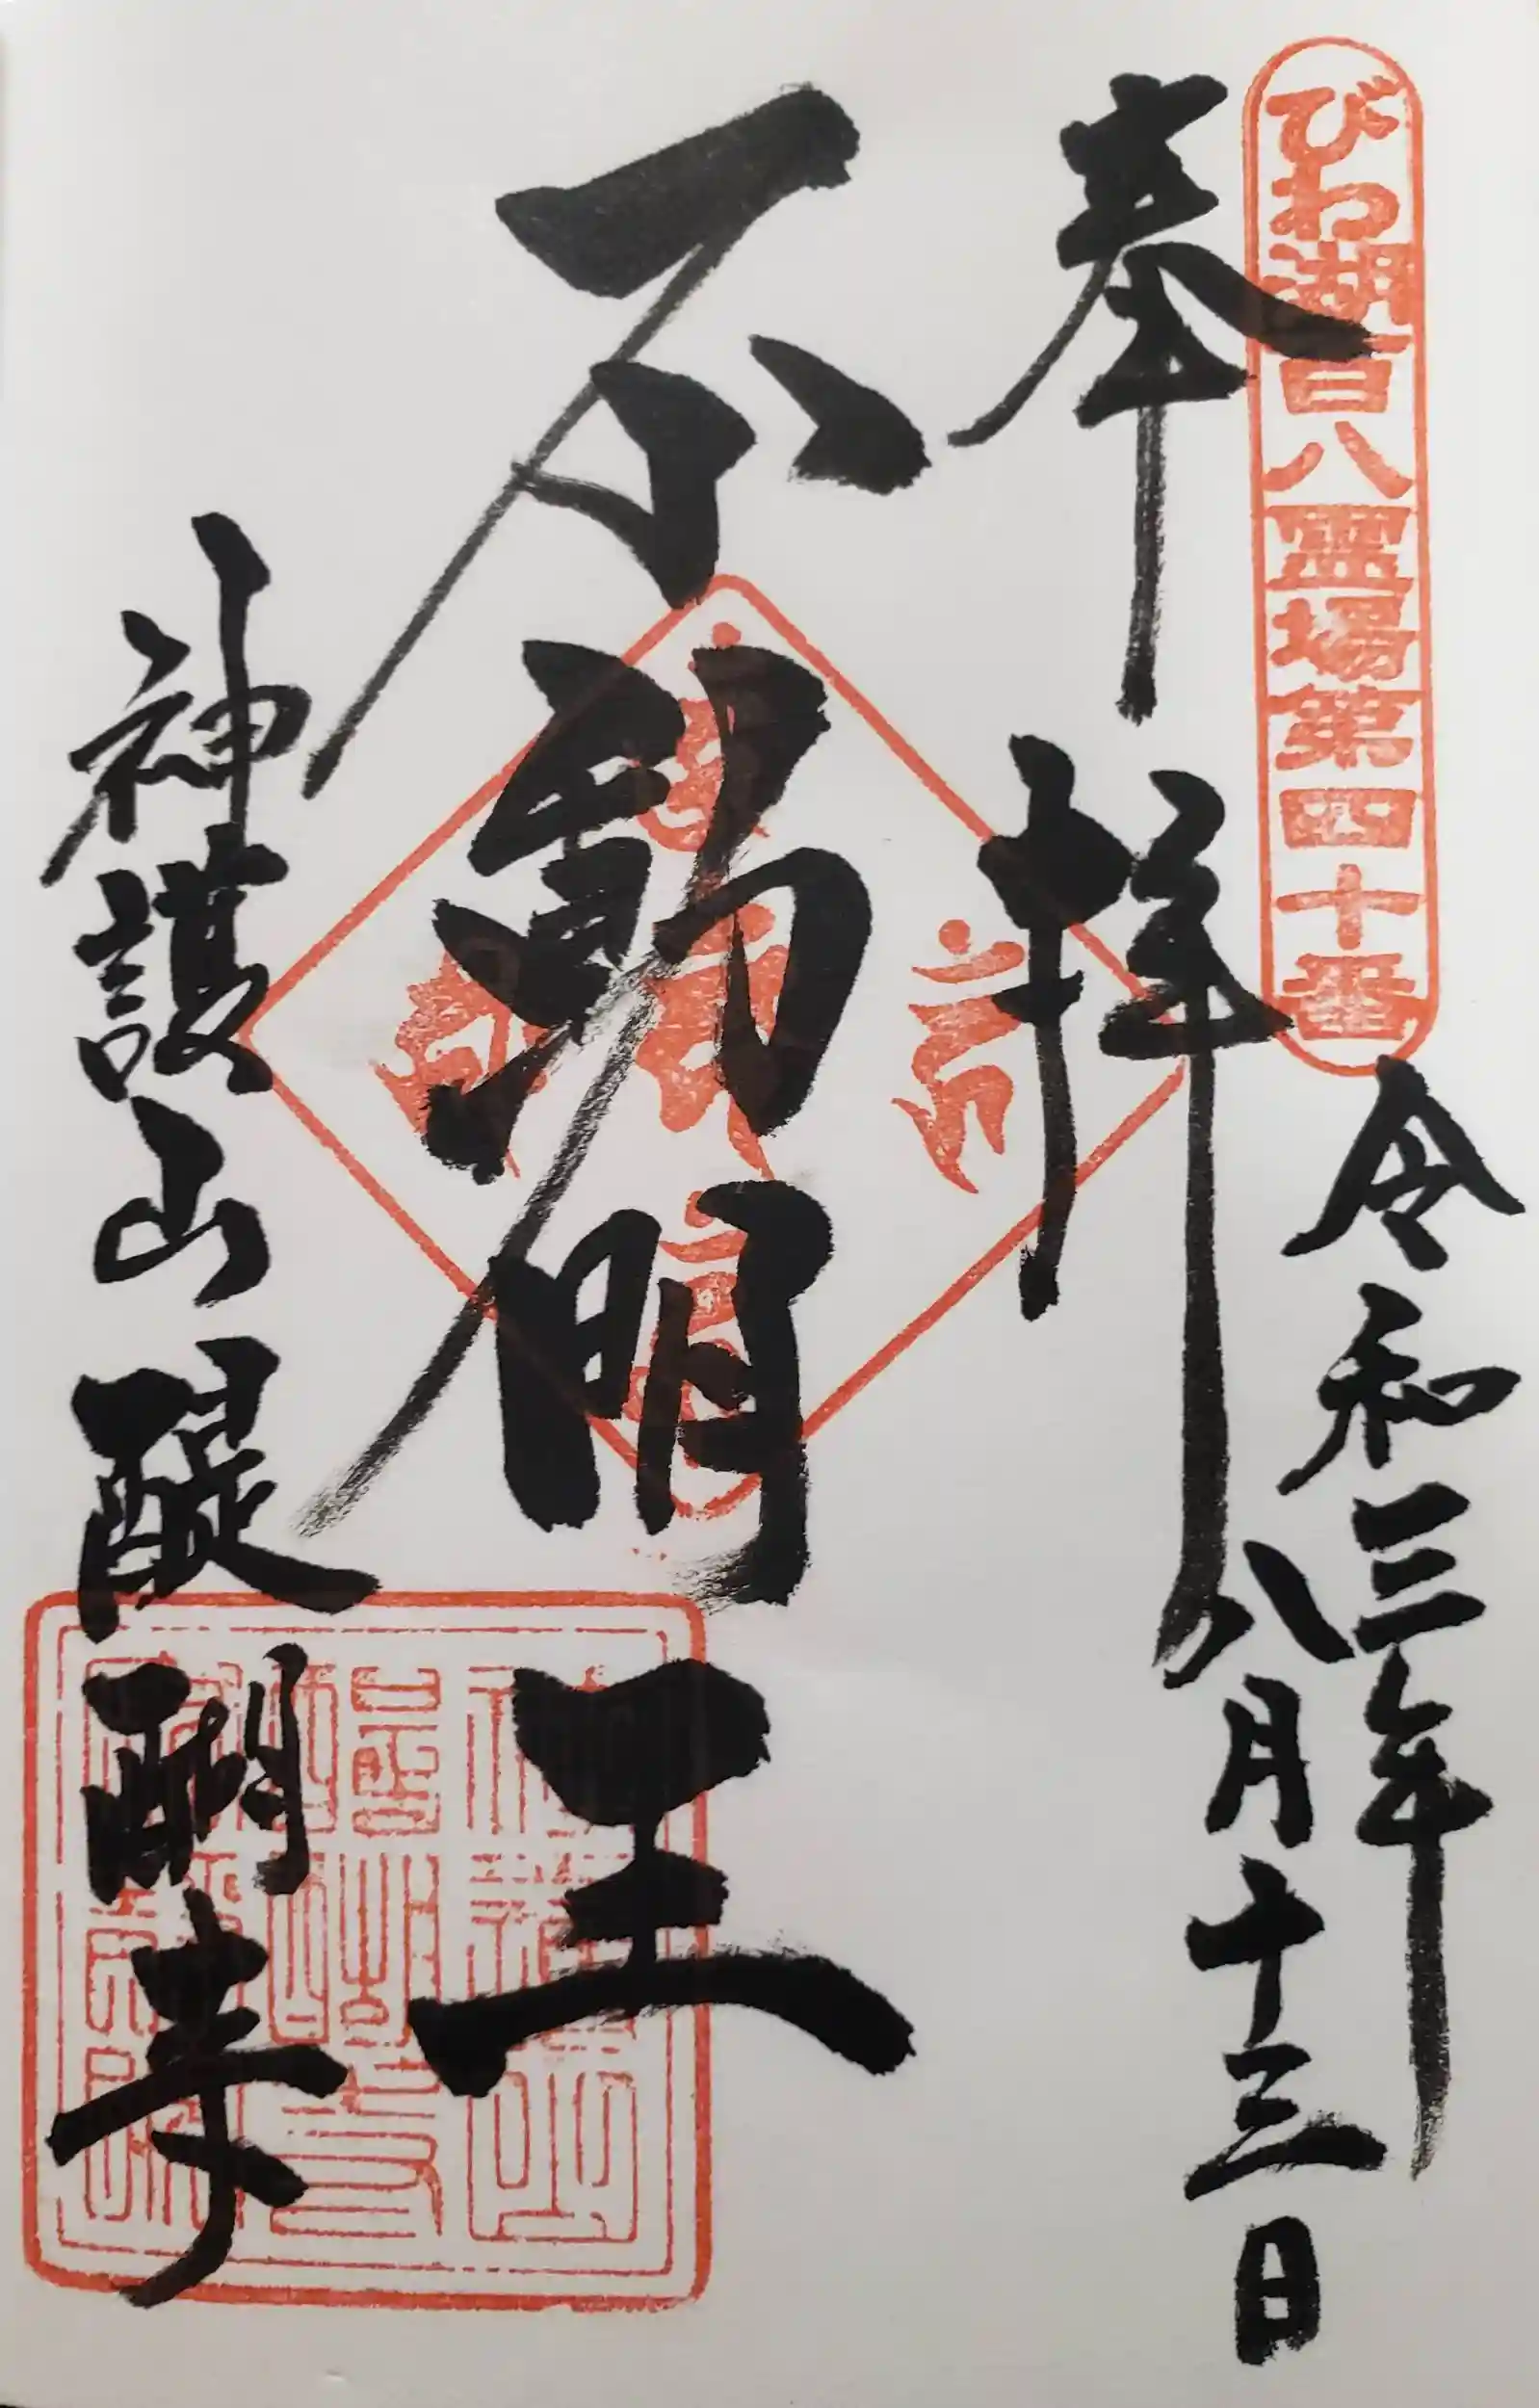 びわ湖百八霊場第四十番
奉拝
令和三年
八月十三日
不動明王
神護山醍醐寺